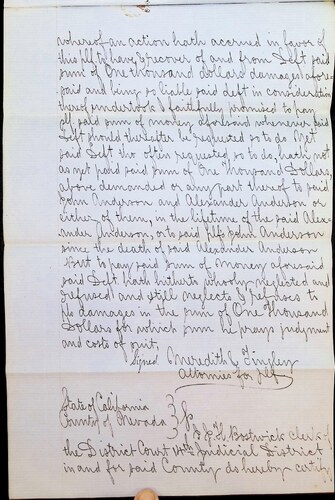 whereof an action hath accrued in favor of
this plf to have & recover of and from Deft said
sum of One thousand dollars damages afore
said and being so liable said deft in consideration
thereof undertook & faithfully promised to pay
plf said sum of money aforesaid whenever said
Deft should thereafter be requested so to do. Yet
said Deft tho often requested so to do, hath not
as yet paid said sum of One Thousand Dollars,
above demanded or any part thereof to said
John Anderson and Alexander Anderson or
either of them, in the lifetime of the said Alex
ander Anderson, or to said plf John Anderson
since the death of said Alexander Anderson
But to pay said sum of money aforesaid
said Deft hath hitherto wholly neglected and
refused and still neglects & refuses to
plfs damages in the sum of One Thousand
Dollars for which sum he prays judgment
and costs of suit.
Signed Meredith & Tingley
Attornies for plf
State of California
County of Nevada } ss
I J. H. Bostwick Clerk of
the District Court 14th Judicial District
in and for said County do hereby certify